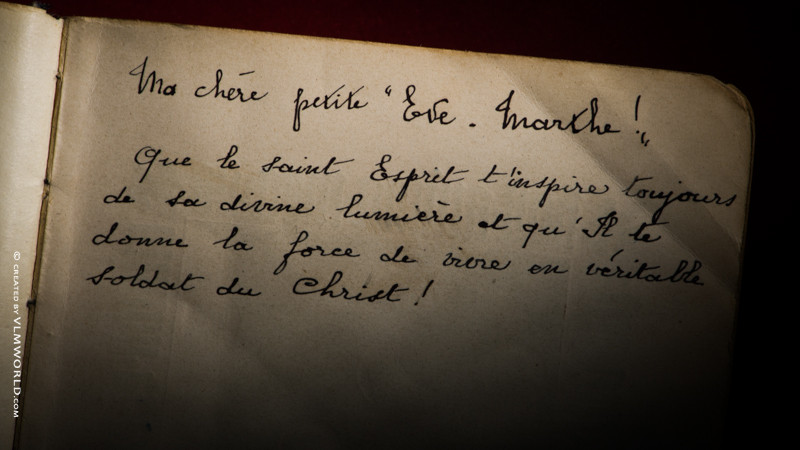 Ma chère petite "Eve. Marthe!"
Que le saint Esprit t'inspire toujours
de sa divine lumière et qu'Il te
donne la force de vivre en véritable
soldat du Christ!
© CREATED BY VLMWORLD.COM